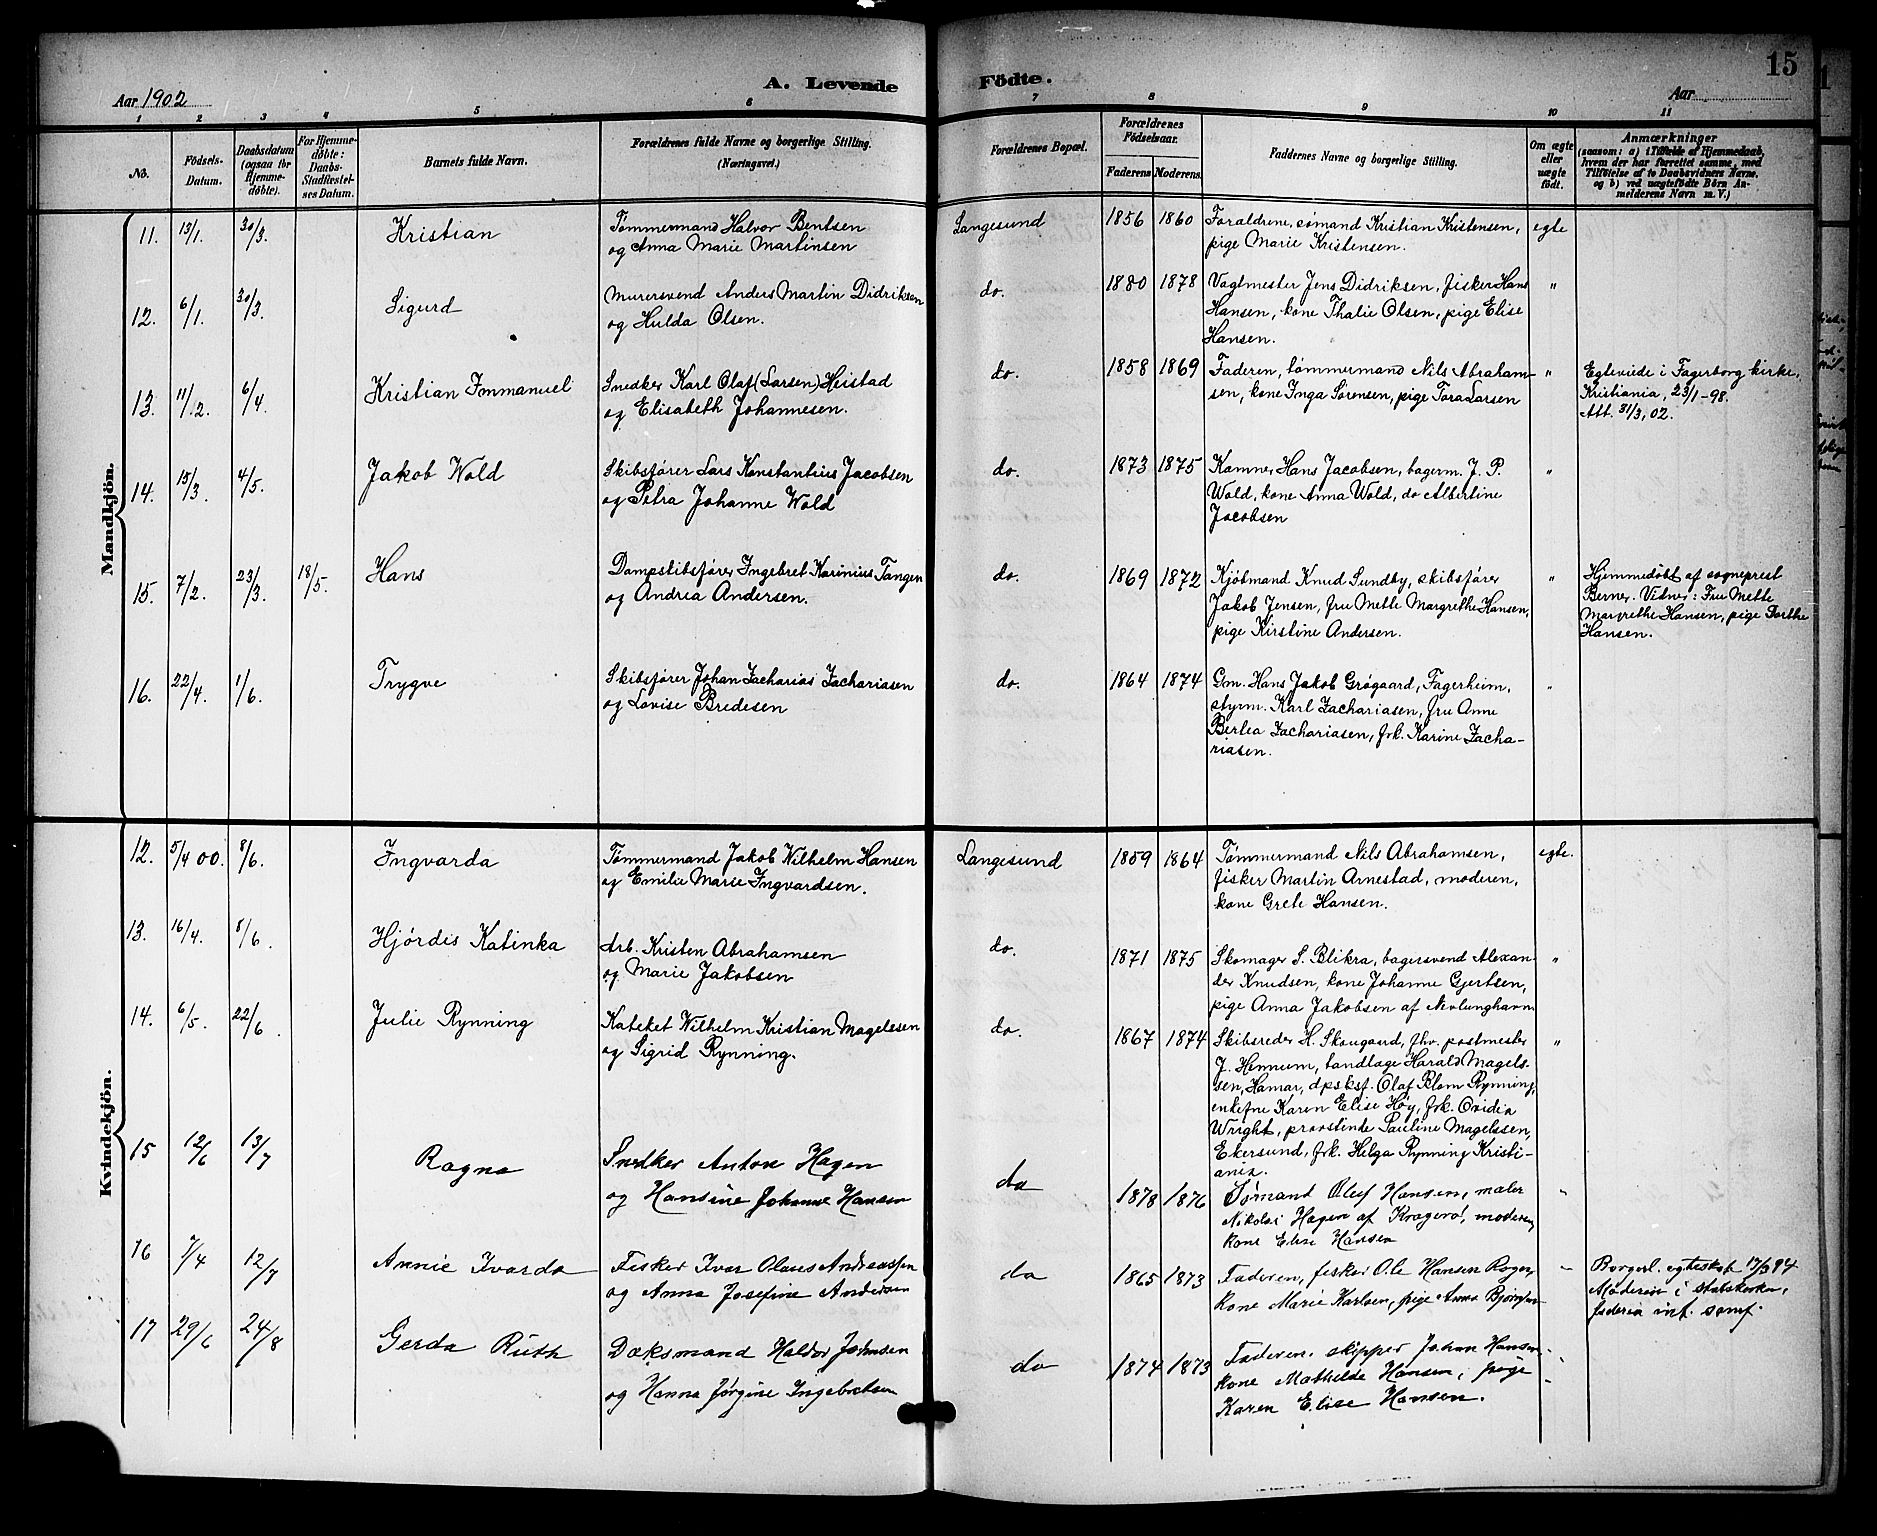 15
A. Levende Födte.
Aar 1902
Aar
1 2 3 4 5 6 7 8 9 10 11
No.
Födsels-
Datum.
Daabsdatum
(ogsaa for
Hjemme-
døbte).
For Hjemme-
døbte:
Daabs-
Stadfæstel-
ses Datum.
Barnets fulde Navn.
Forældrenes fulde Navne og borgerlige Stilling.
(Næringsvei.)
Forældrenes Bopæl.
Forældrenes
Födselsaar.
Faderens
Moderens.
Faddernes Navne og borgerlige Stilling.
Om ægte
eller
uægte
født.
Anmærkninger
(saasom: a) i Tilfælde af Hjemmedaab,
hvem der har forrettet samme, med
Tilföielse af to Daabsvidners Navne,
og b) ved uægtefödte Börn An-
melderens Navn m. V.)
Mandkjön.
11. 13/1. 30/3. Kristian
Tømmermand Halvor Bentsen
og Anna Marie Martinsen
Langesund 1856 1860
Forældrene, sømand Kristian Kristensen,
pige Marie Kristensen.
egte
12. 6/1. 30/3. Sigurd
Murersvend Anders Martin Didriksen
og Hulda Olsen.
do. 1880 1878
Vagtmester Jens Didriksen, fisker Hans
Hansen, kone Thalie Olsen, pige Elise
Hansen.
"
13. 11/2. 6/4. Kristian Immanuel
Snedker Karl Olaf (Larsen) Heistad
og Elisabeth Johannesen.
do. 1858 1869
Faderen, tømmermand Nils Abraham-
sen, kone Inga Sørensen, pige Tora Larsen
"
Egteviede i Fagerborg kirke,
Kristiania, 23/1-98.
Att. 31/3, 02.
14. 15/3. 4/5. Jakob Wold
Skibsfører Lars Konstantius Jacobsen
og Petra Johanne Wold
do. 1873 1875
Kamner Hans Jacobsen, bagerm. J. P.
Wold, kone Anna Wold, do Albertine
Jacobsen
"
15. 7/2. 23/3. 18/5. Hans
Dampskibsfører Ingebret Karinius Tangen
og Andrea Andersen.
do. 1869 1872
Kjøbmand Knud Sundby, skibsfører
Jakob Jensen, fru Mette Margrethe Hansen,
pige Kirstine Andersen.
"
Hjemmedøbt af sogneprest
Berner. Vidner: Fru Mette
Margrethe Hansen, pige Dorthe
Hansen.
16. 22/4. 1/6. Trygve
Skibsfører Johan Zacharias Zachariasen
og Lovise Bredesen
do. 1864 1874
Gm. Hans Jakob Grøgaard, Fagerheim,
styrm. Karl Zachariasen, fru Anne
Bertea Zachariasen, frk. Karine Zacha-
riasen.
"
Kvindekjön.
12. 5/4 00. 8/6. Ingvarda
Tømmermand Jakob Wilhelm Hansen
og Emilie Marie Ingvardsen.
Langesund 1859 1864
Tømmermand Nils Abrahamsen,
fisker Martin Arnestad, moderen,
kone Grete Hansen.
egte.
13. 16/4. 8/6. Hjørdis Katinka
Arb. Kristen Abrahamsen
og Marie Jakobsen
do. 1871 1875
Skomager S. Blikra, bagersvend Alexan-
der Knudsen, kone Johanne Gjertsen,
pige Anna Jakobsen af Nevlunghavn
"
14. 6/5. 22/6. Julie Rynning
Kateket Wilhelm Kristian Magelssen
og Sigrid Rynning.
do. 1867 1874
Skibsreder H. Skougaard, fhv. postmester
J. Hennum, tandlæge Harald Magels-
sen, Hamar, dpskf. Olaf Blom Rynning,
enkefru Karen Elise Høy, frk. Ovidia
Wright, provstinde Pauline Magelssen,
Ekersund, frk. Helga Rynning Kristi-
ania.
"
15 12/6 13/7 Ragna
Snedker Anton Hagen
og Hansine Johanne Hansen
do 1878 1876
Sømand Oluf Hansen, maler
Nikolai Hagen af Kragerø, moderen,
kone Elise Hansen
"
16 7/4 12/7 Annie Ivarda
Fisker Ivar Olaus Andreassen
og Anna Josefine Andersen
do 1865 1873
Faderen, fisker Ole Hansen Rogn,
kone Marie Karlsen, pige Anna Bjørnsen
"
Borgerl. egteskab 17/3 94
Moderen i statskirken,
faderen inf. samf.
17 29/6 24/8 Gerda Ruth
Dæksmand Haldor Johnsen
og Hanna Jørgine Ingebretsen
do 1874 1873
Faderen, skipper Johan Hansen
kone Mathilde Hansen, pige
Karen Elise Hansen.
"